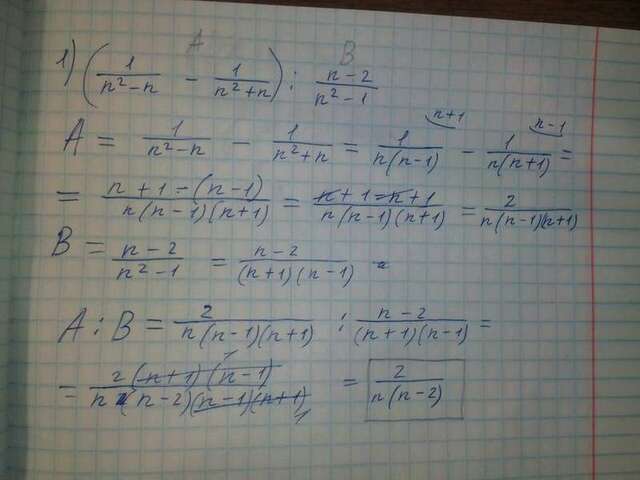 A B
1) (1/(n²-n) - 1/(n²+n)) : (n-2)/(n²-1)
n+1 n-1
A = 1/(n²-n) - 1/(n²+n) = 1/(n(n-1)) - 1/(n(n+1)) =
= (n+1-(n-1))/(n(n-1)(n+1)) = (n+1-n+1)/(n(n-1)(n+1)) = 2/(n(n-1)(n+1))
B = (n-2)/(n²-1) = (n-2)/((n+1)(n-1))
A : B = 2/(n(n-1)(n+1)) : (n-2)/((n+1)(n-1)) =
= 2(n+1)(n-1)/(n(n-2)(n-1)(n+1)) = 2/(n(n-2))